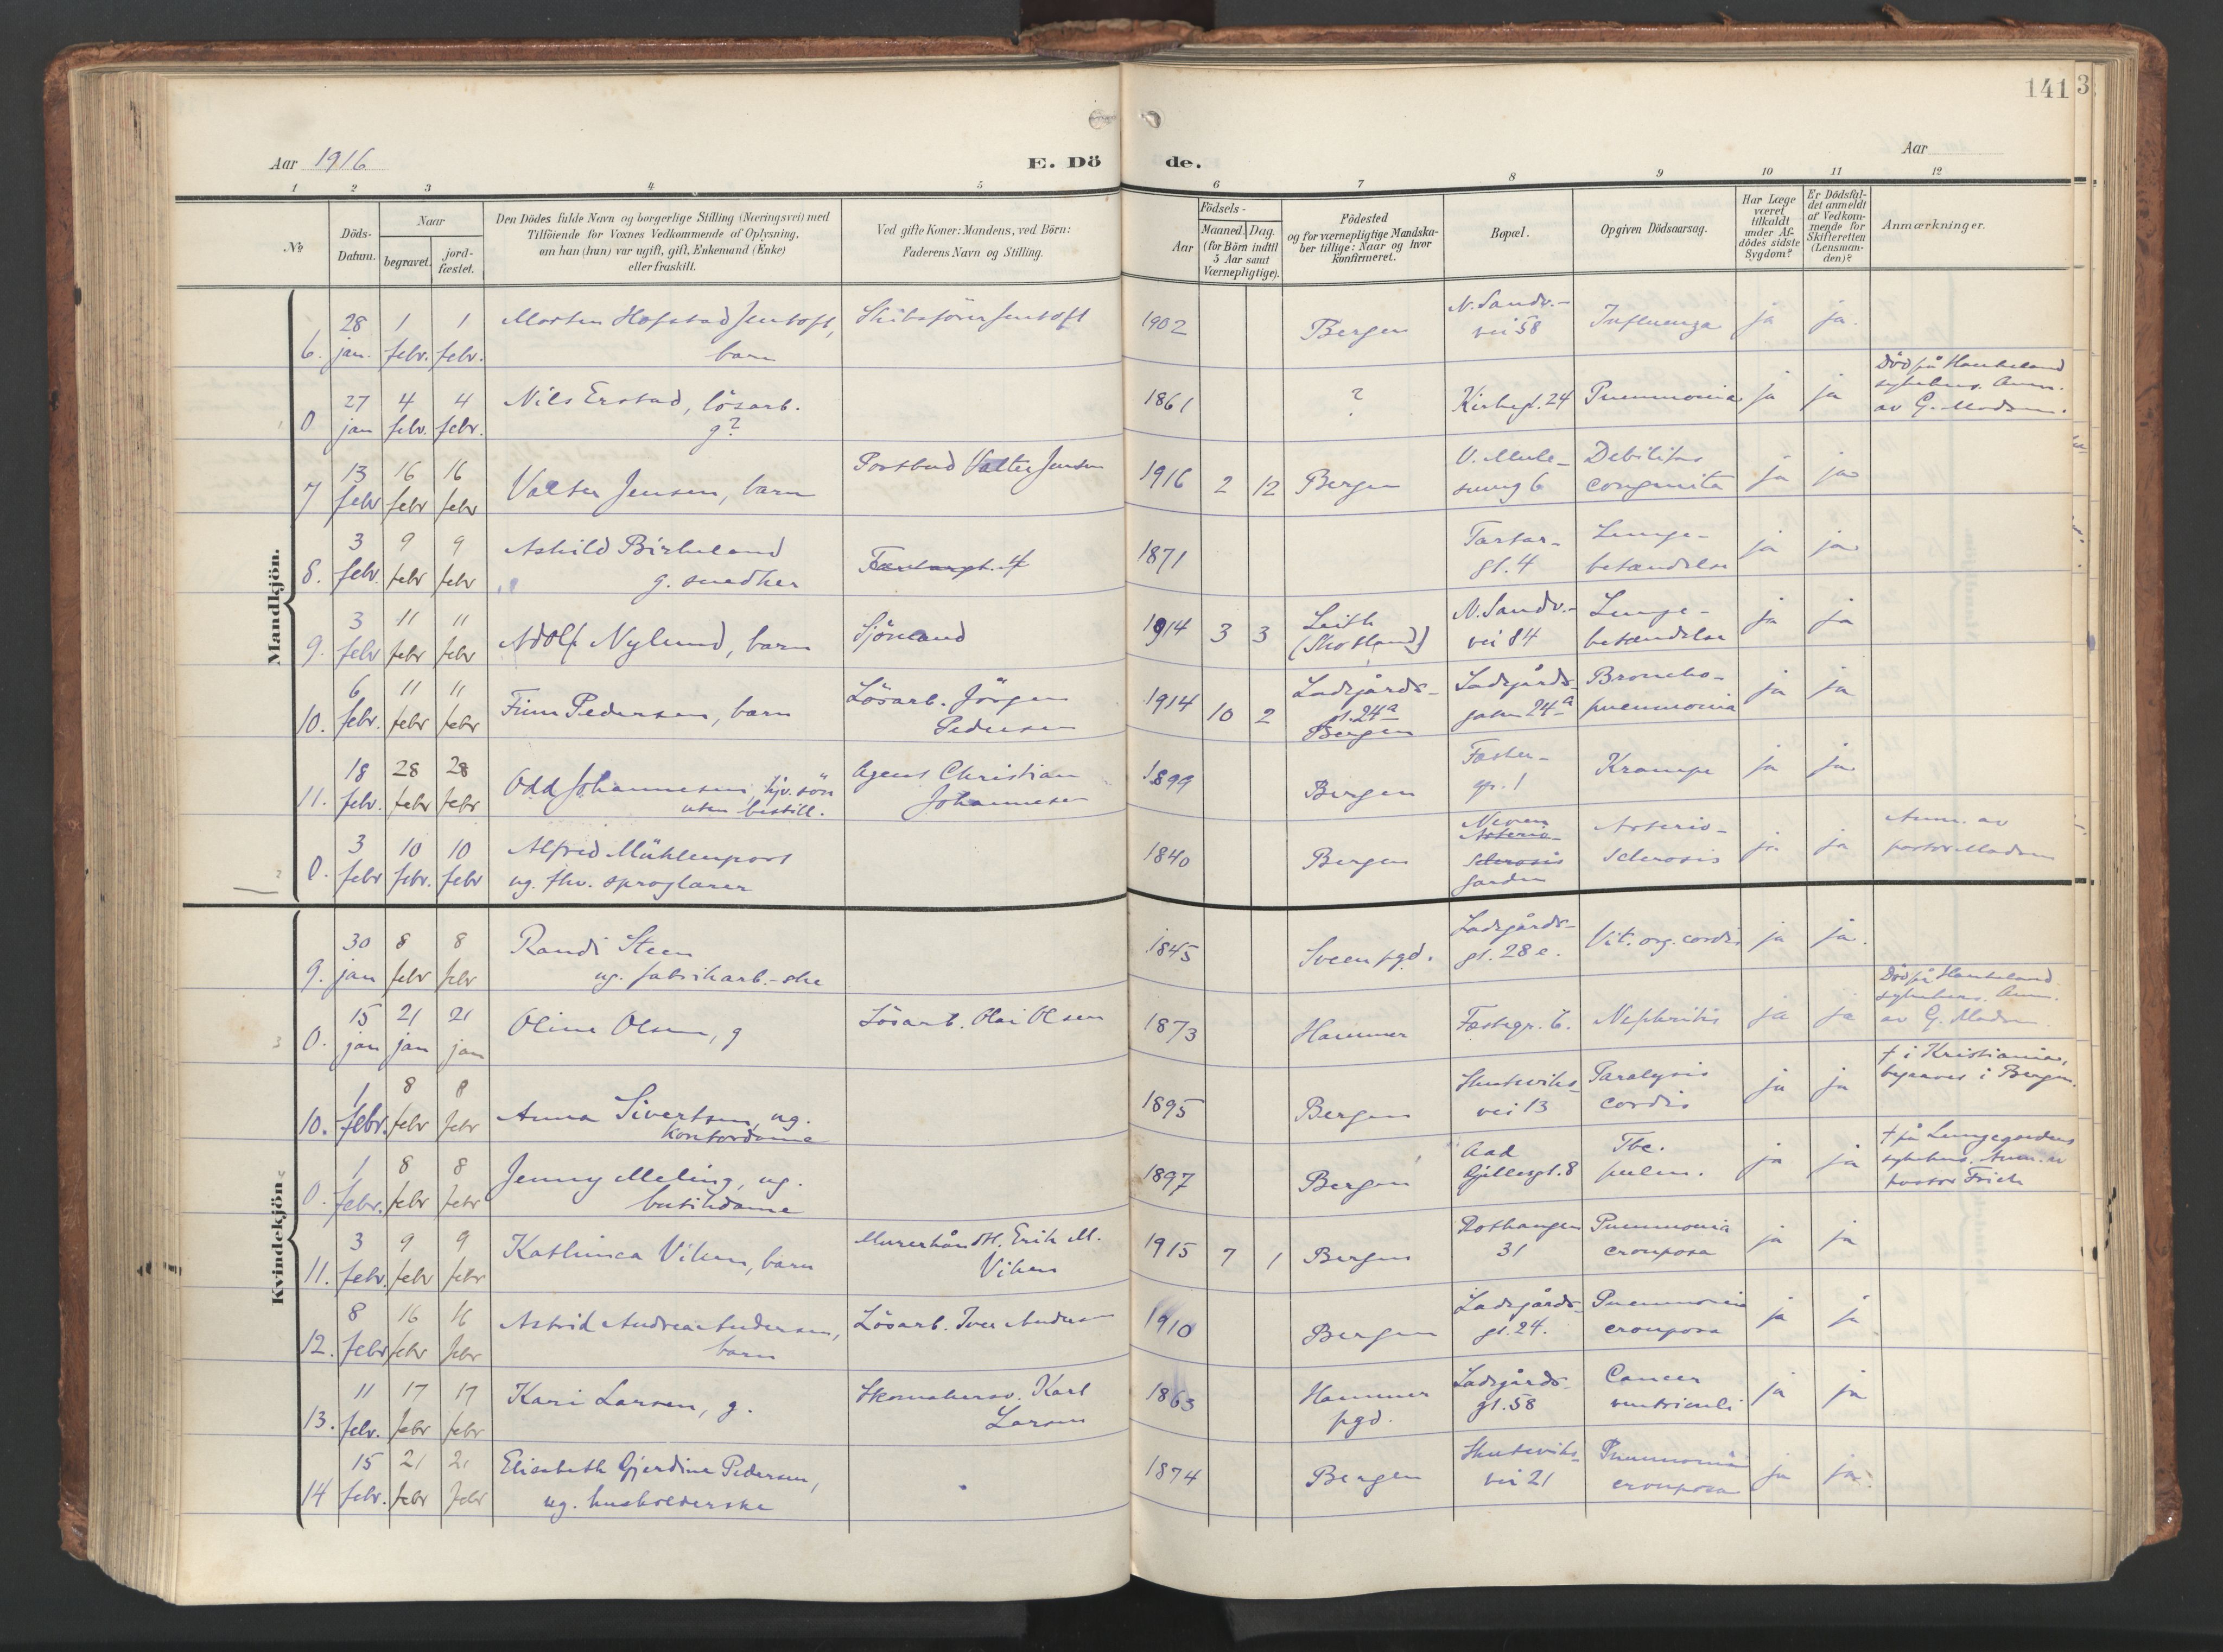 141
3
Aar 1916
E. Dö de.
Aar
1 2 3 4 5 6 7 8 9 10 11 12
No
Döds-Datum.
Naar
begravet.
jord-fæstet.
Den Dödes fulde Navn og borgerlige Stilling (Næringsvei) med
Tilföiende for Voxnes Vedkommende af Oplysning,
om han (hun) var ugift, gift, Enkemand (Enke)
eller fraskilt.
Ved gifte Koner: Mandens, ved Börn:
Faderens Navn og Stilling.
Födsels-
Aar
Maaned. Dag.
(for Börn indtil
5 Aar samt
Værnepligtige).
Födested
og for værnepligtige Mandska-
ber tillige: Naar og hvor
konfirmeret.
Bopæl.
Opgiven Dödsaarsag.
Har Læge
været
tilkaldt
under Af-
dödes sidste
Sygdom?
Er Dödsfal-
det anmeldt
af Vedkom-
mende for
Skifteretten
(Lensman-
den)?
Anmærkninger.
Mandkjön.
6. 28 jan. 1 febr. 1 febr. Morten Hofstad Jentoft, barn Skibsförer Jentoft 1902 Bergen N. Sandv.-vei 58 Influenza ja ja.
0 27 jan 4 febr. 4 febr. Nils Erstad, lösarb. g? 1861 ? Kirkegt. 24 Pneumonia ja ja Död på Haukeland sykehus. Anm. av G. Madsen.
7 13 febr 16 febr 16 febr Valter Jensen, barn Postbud Valter Jensen 1916 2 12 Bergen Ö. Mule-smug 6 Debilitas congenita ja ja
8. 3 febr. 9 febr 9 febr Askild Birkeland g. snedker 1871 Tartar-gt. 4 Lunge-betændelse ja ja
9. 3 febr 11 febr 11 febr Adolf Nylund, barn Sjömand 1914 3 3 Leith (Skotland) N. Sandv.-vei 84 Lunge-betændelse ja ja
10. 6 febr. 11 febr 11 febr Finn Pedersen, barn Lösarb. Jörgen Pedersen 1914 10 2 Ladegårds-gt. 24a Bergen Ladegårds-gaten 24a Broncho-pneumonia ja ja
11. 18 febr. 28 febr 28 febr Odd Johannesen, hjv. sön uten bestill. Agent Christian Johannesen 1899 Bergen Fæster-gr. 1 Krampe ja ja
0. 3 febr 10 febr. 10 febr Alfred Mühlenport ug. fhv. sproglærer 1840 Bergen Neven Arterio-sclerosis garden Arterio-sclerosis ja ja Anm. av pastor Madsen
Kvindekjön.
9. 30 jan 8 febr 8 febr Randi Steen ug. fabrikarb.-ske 1845 Sveen pgd. Ladegårds-gt. 28 e. Vit. org. cordis ja ja.
0. 15 jan 21 jan 21 jan Oline Olsen, g Lösarb. Olai Olsen 1873 Hammer Fæstegr. 6. Nephritis ja ja Död på Haukeland sykehus. Anm. av G. Madsen
10. 1 febr. 8 febr 8 febr Anna Sivertsen, ug. kontordame 1895 Bergen Skuteviks-vei 13 Paralysis cordis ja ja † i Kristiania, begraves i Bergen.
0. 1 febr. 8 febr 8 febr Jenny Meling, ug. butikdame 1897 Bergen Aad Gjellesgt. 8 Tbc. pulm. ja ja † på Lungegaardens sykehus. Anm. av pastor Frich
11. 3 febr. 9 febr 9 febr Kathinca Viken, barn Murerhåndtl. Erik M. Viken 1915 7 1 Bergen Rothaugen 31 Pneumonia crouposa ja ja
12. 8 febr 16 febr 16 febr Astrid Andrea Andersen, barn Lösarb. Iver Andersen 1910 Bergen Ladegårds-gt. 24. Pneumonia crouposa ja ja
13. 11 febr. 17 febr 17 febr Kari Larsen, g. Skomakersv. Karl Larsen 1863 Hammer pgd. Ladegårds-gt. 58 Cancer ventriculi ja ja
14 15 febr. 21 febr 21 febr Elisabeth Gjerdine Pedersen, ug. husholderske 1874 Bergen Skuteviks-vei 21 Pneumonia crouposa ja ja.